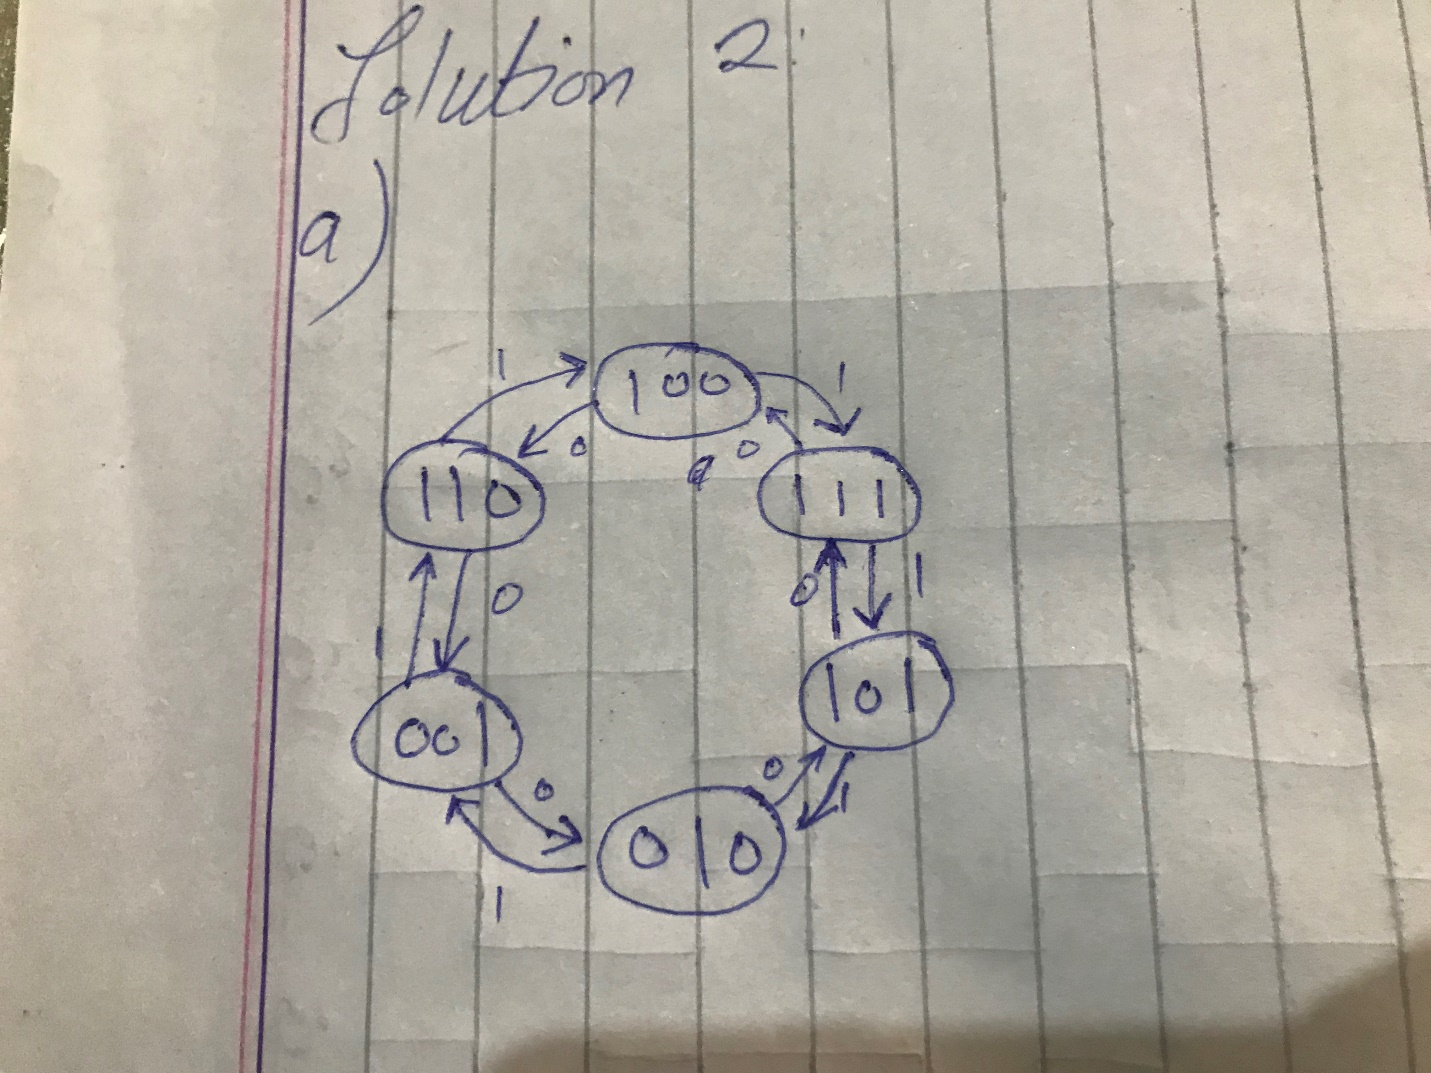 Solution 2:
a)
1 100 1
0 0
110 111
0 0 1
1
001 101
0 0 1
010
1